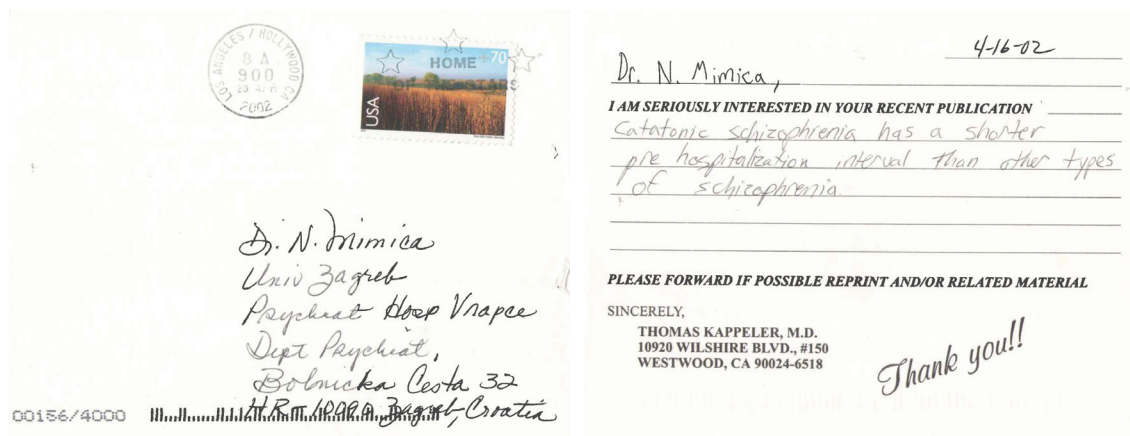 LOS ANGELES / HOLLYWOOD CA
8 A
900
2002
70
HOME
USA
Dr. N. Mimica
Univ Zagreb
Psychiat Hosp Vrapce
Dept Psychiat,
Bolnicka Cesta 32
HR 10090 Zagreb, Croatia
00156/4000
4-16-02
Dr. N. Mimica,
I AM SERIOUSLY INTERESTED IN YOUR RECENT PUBLICATION
Catatonic schizophrenia has a shorter
pre hospitalization interval than other types
of schizophrenia.
PLEASE FORWARD IF POSSIBLE REPRINT AND/OR RELATED MATERIAL
SINCERELY,
THOMAS KAPPELER, M.D.
10920 WILSHIRE BLVD., #150
WESTWOOD, CA 90024-6518
Thank you!!